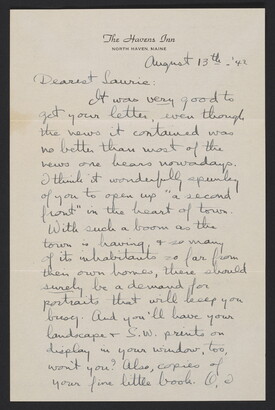 The Havens Inn
NORTH HAVEN, MAINE
August 13th - '42
Dearest Laurie:
It was very good to
get your letter, even though
the news it contained was
no better than most of the
news one hears nowadays.
I think it wonderfully spunky
of you to open up "a second
front" in the heart of town.
With such a boom as the
town is having, & so many
of its inhabitants so far from
their own homes, there should
surely be a demand for
portraits that will keep you
busy. And you'll have your
landscape & S.W. prints on
display in your window, too,
won't you? Also, copies of
your fine little book.